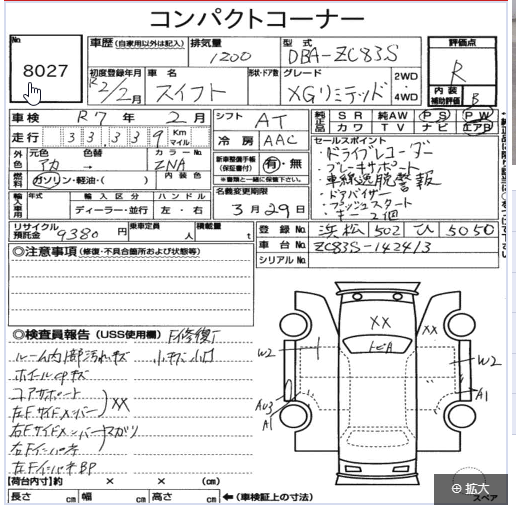 コンパクトコーナー
No 8027
車歴 (自家用以外は記入) 排気量 1200 型式 DBA-ZC83S 評価点 R
初度登録年月 R2/2月 車名 スイフト 形状・ドア数 グレード XGリミテッド 2WD・4WD 内装補助評価 B
車検 R7年2月 シフト AT 純正品 SR 純AW PS PW
カワ TV ナビ エアB
走行 33,339 Km マイル 冷房 AAC
セールスポイント
・ドライブレコーダー
・ブレーキサポート
・車線逸脱警報
・ドアバイザー
・プッシュスタート
・キー2個
外色 元色 アカ → 色替 カラーNo. ZNA
新車整備手帳 (保証書付) 有・無
※書類と一緒に保管して下さい。
燃料 ガソリン・軽油・( ) 内装色
輸入車用 年式 輸入区分 ディーラー・並行 ハンドル 左・右
名義変更期限 3月29日
リサイクル預託金 9380円 乗車定員 人 積載量 t
登録No. 浜松 502 ひ 5050
車台No. ZC83S-142413
シリアルNo.
◎注意事項 (修復・不具合箇所および状態等)
◎検査員報告 (USS使用欄) F修復
ルーム内部汚れキズ 小キズ小凹
ホイールCPキズ
コアサポート
左Fサイドメンバー XX
右Fサイドメンバーマガリ
右Fインパネ
左FインパネBP
XX XX
W2 W2
AU3 A1 A1
【荷台内寸】約 × × (cm)
長さ cm 幅 cm 高さ cm ←(車検証上の寸法)
スペア
拡大